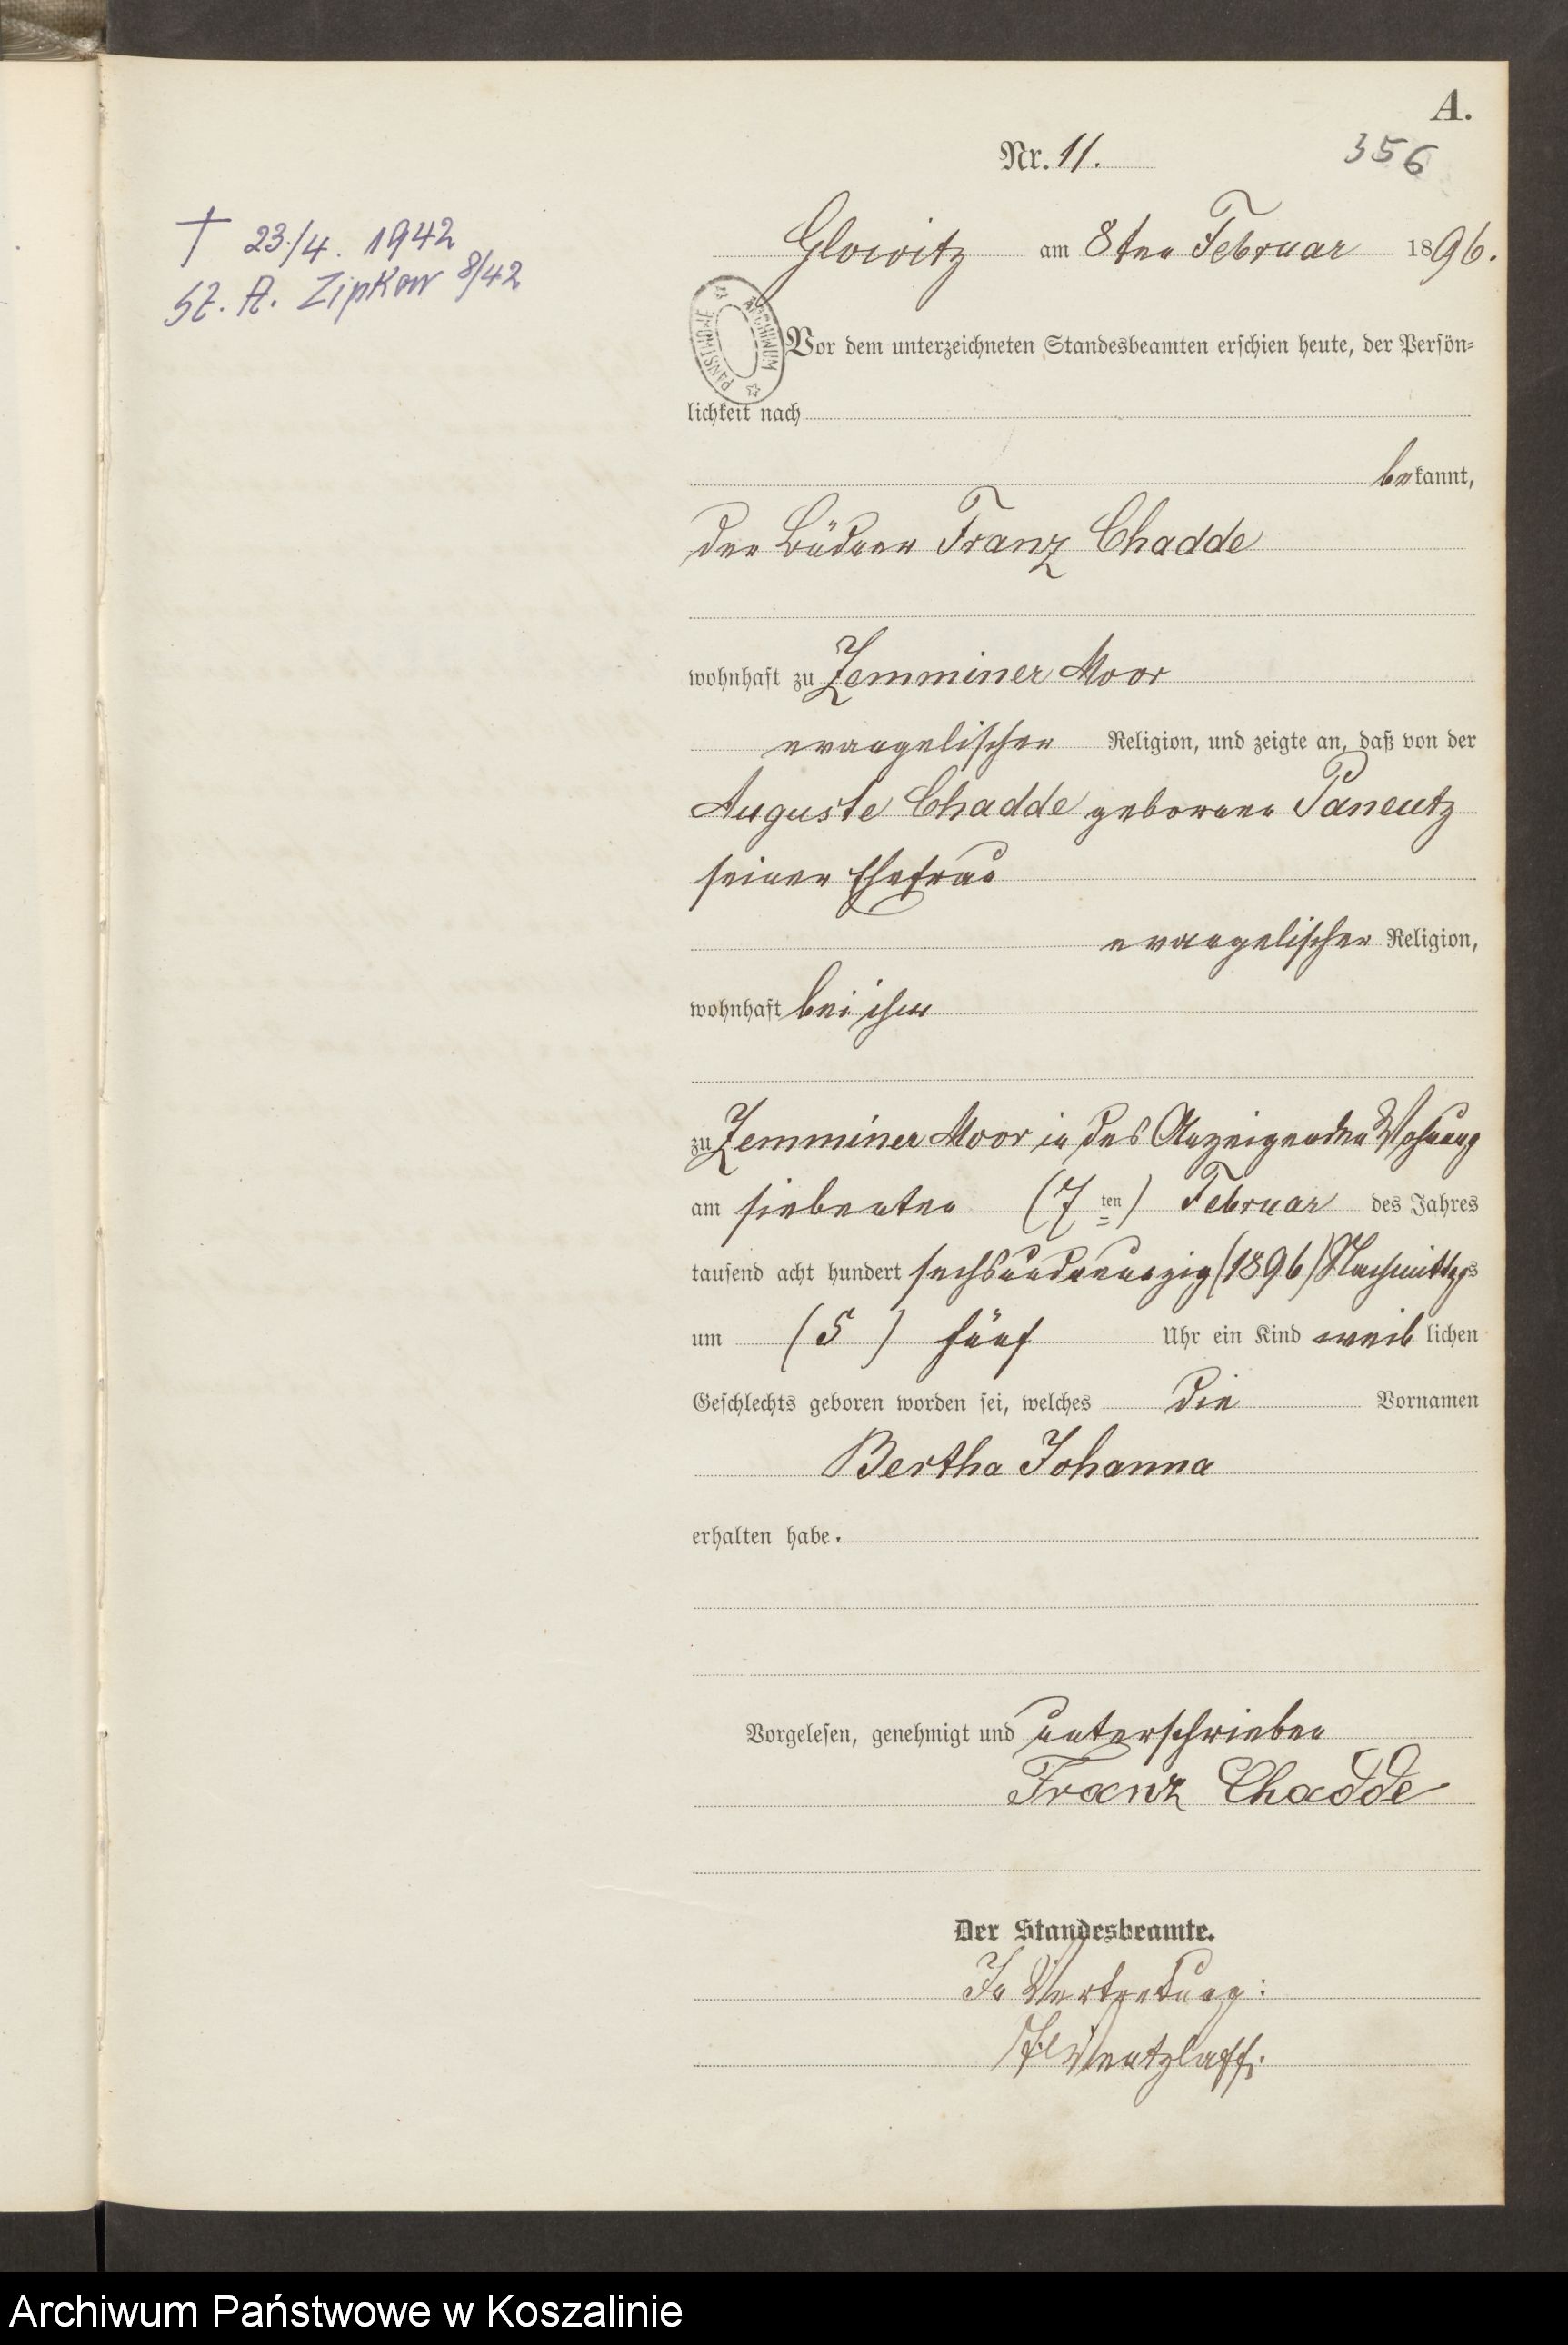 A.
Nr. 11.
356
† 23./4. 1942
St. A. Zipkow 8/42
Glowitz am 8ten Februar 1896.
ARCHIWUM PAŃSTWOWE
Vor dem unterzeichneten Standesbeamten erschien heute, der Persön-
lichkeit nach
bekannt,
der Büdner Franz Chadde
wohnhaft zu Zemminer Moor
evangelischer Religion, und zeigte an, daß von der
Auguste Chadde geborenen
seiner Ehefrau
evangelischer Religion,
wohnhaft bei ihm
zu Zemminer Moor in des Anzeigenden Wohnung
am siebenten (7ten) Februar des Jahres
tausend acht hundert sechsundneunzig (1896) Nachmittags
um (5) fünf Uhr ein Kind weiblichen
Geschlechts geboren worden sei, welches die Vornamen
Bertha Johanna
erhalten habe.
Vorgelesen, genehmigt und unterschrieben
Franz Chadde
Der Standesbeamte.
In Vertretung:
Wentzlaff.
Archiwum Państwowe w Koszalinie